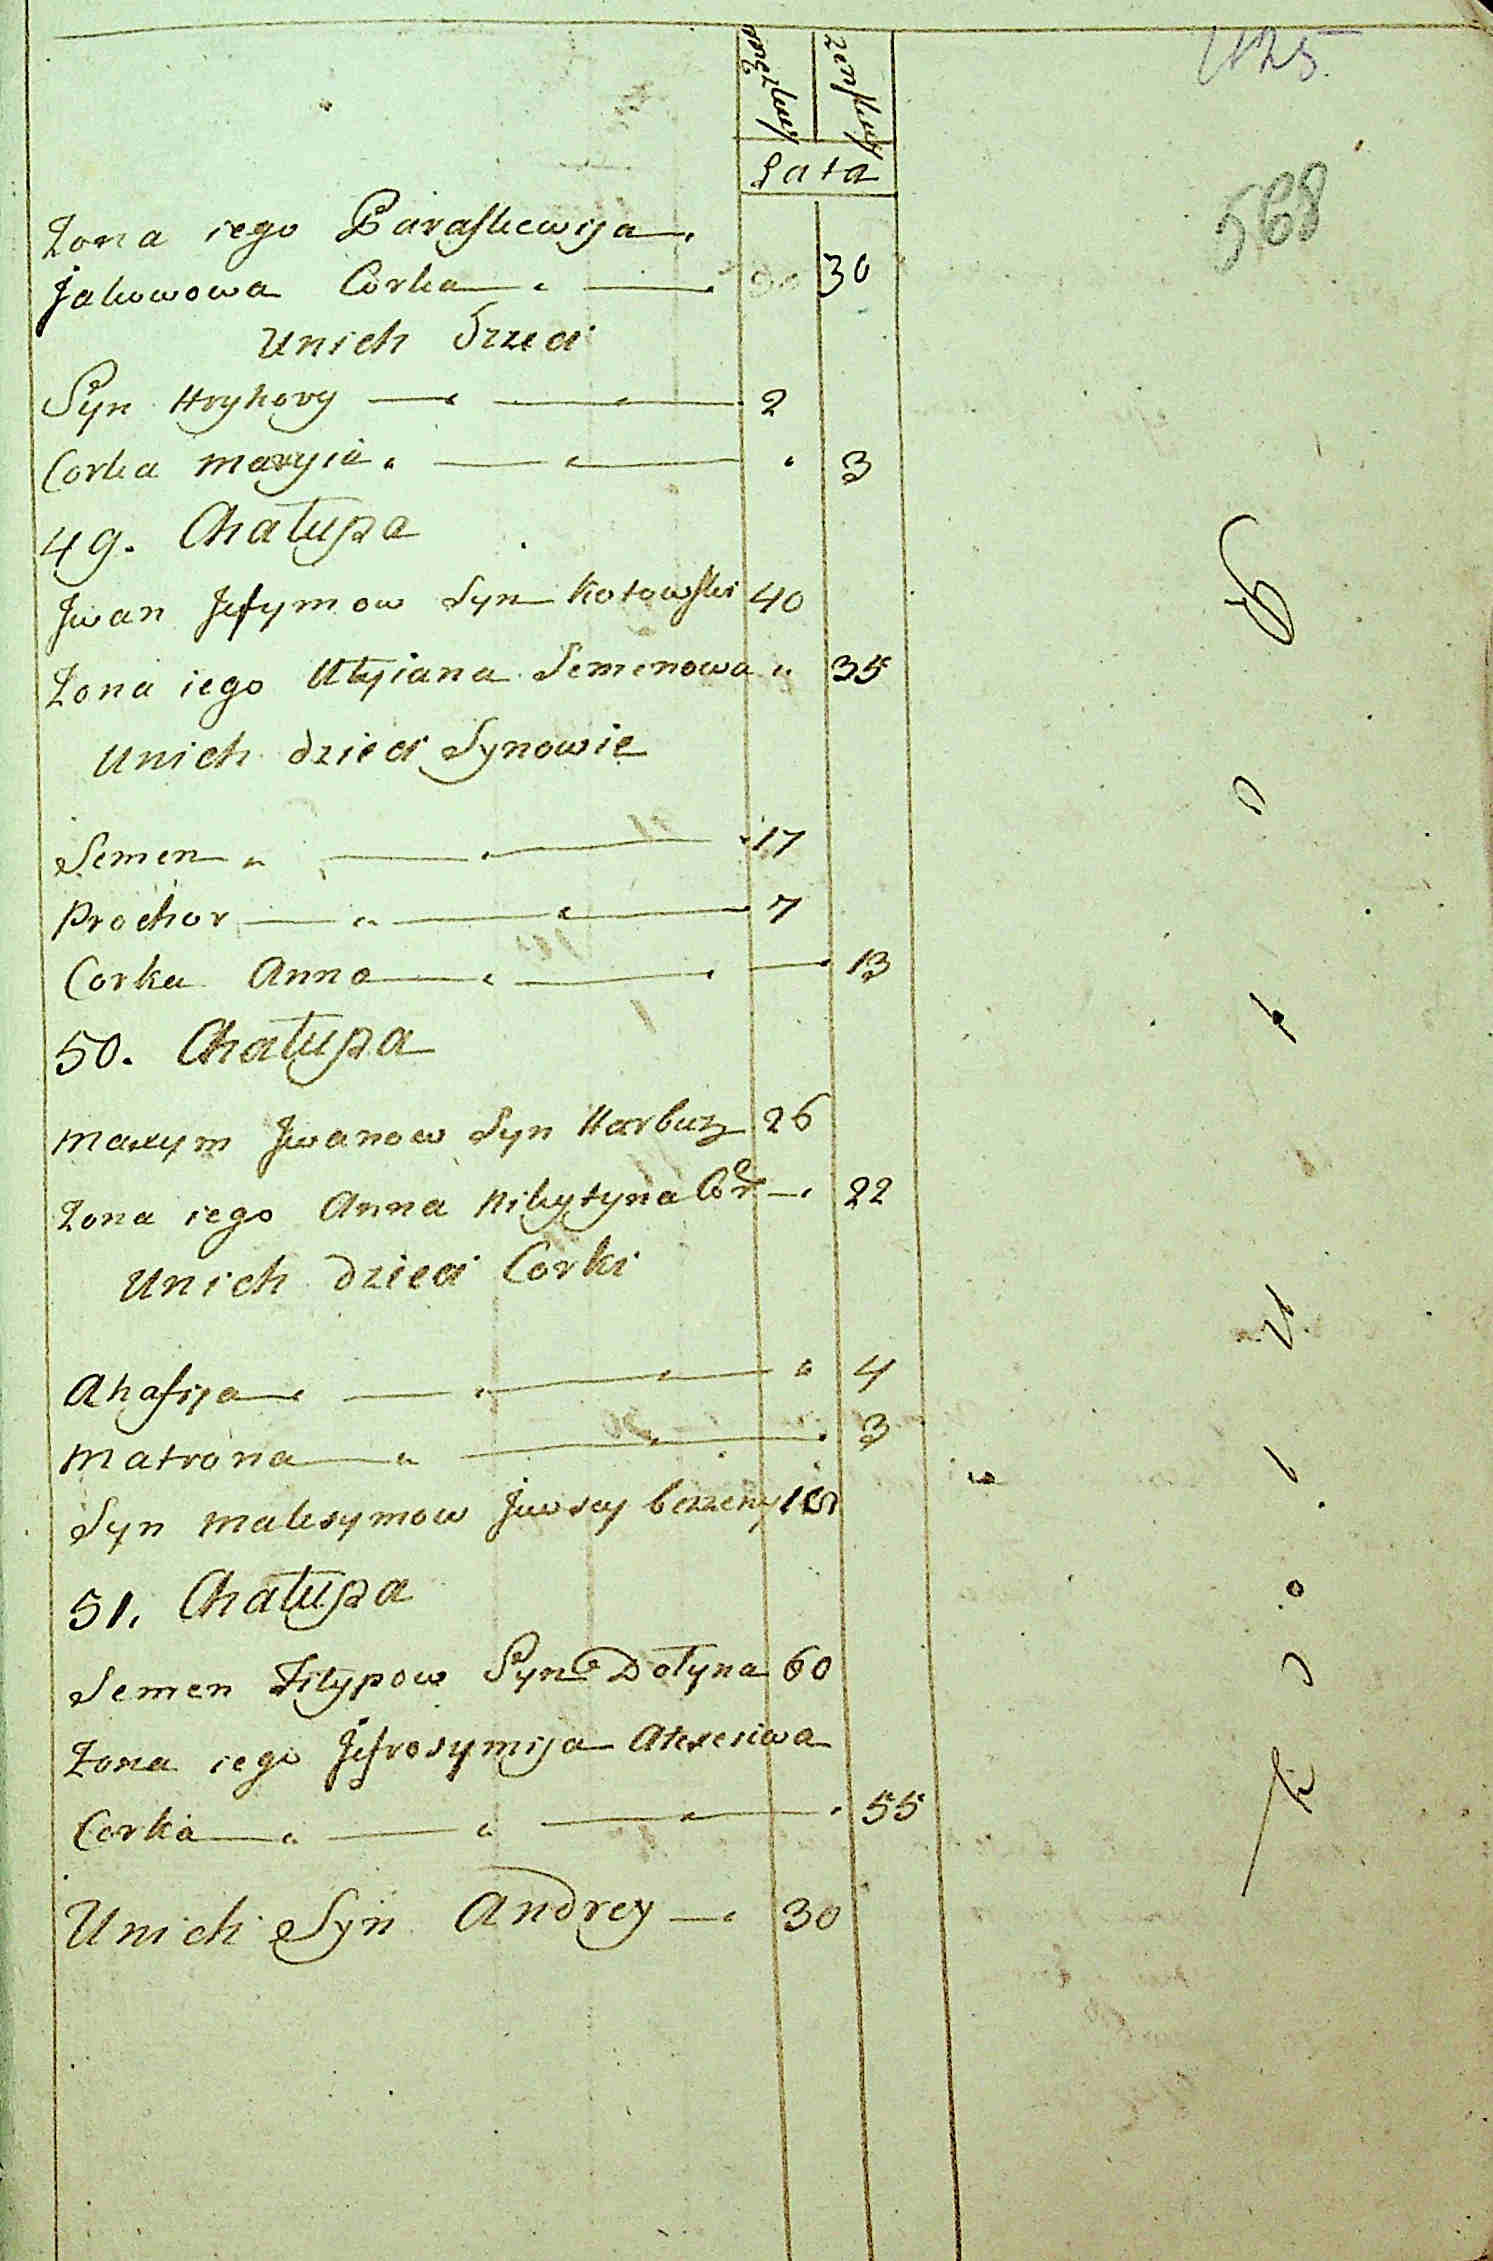 męzkey żenskey
Lata
568
Żona iego Paraskewija
Jakowowa Corka 30
Unich Dzieci
Syn Hryhory 2
Corka Maryia 3
49. Chałupa
Jwan Jefymow Syn Kotowski 40
Żona iego Ulyiana Semenowa 35
Unich dzieci Synowie
Semen 17
Prochor 7
Corka Anna 13
50. Chałupa
Maxym Jwanow Syn Harbuz 26
Żona iego Anna Nikytyna Cor 22
Unich dzieci Corki
Ahafija 4
Matrona 3
Syn Maksymow
51. Chałupa
Semen Filypow Syn Dołyna 60
Żona iego Jefrosymija Alexeiwa
Corka 55
Unich Syn Andrey 30